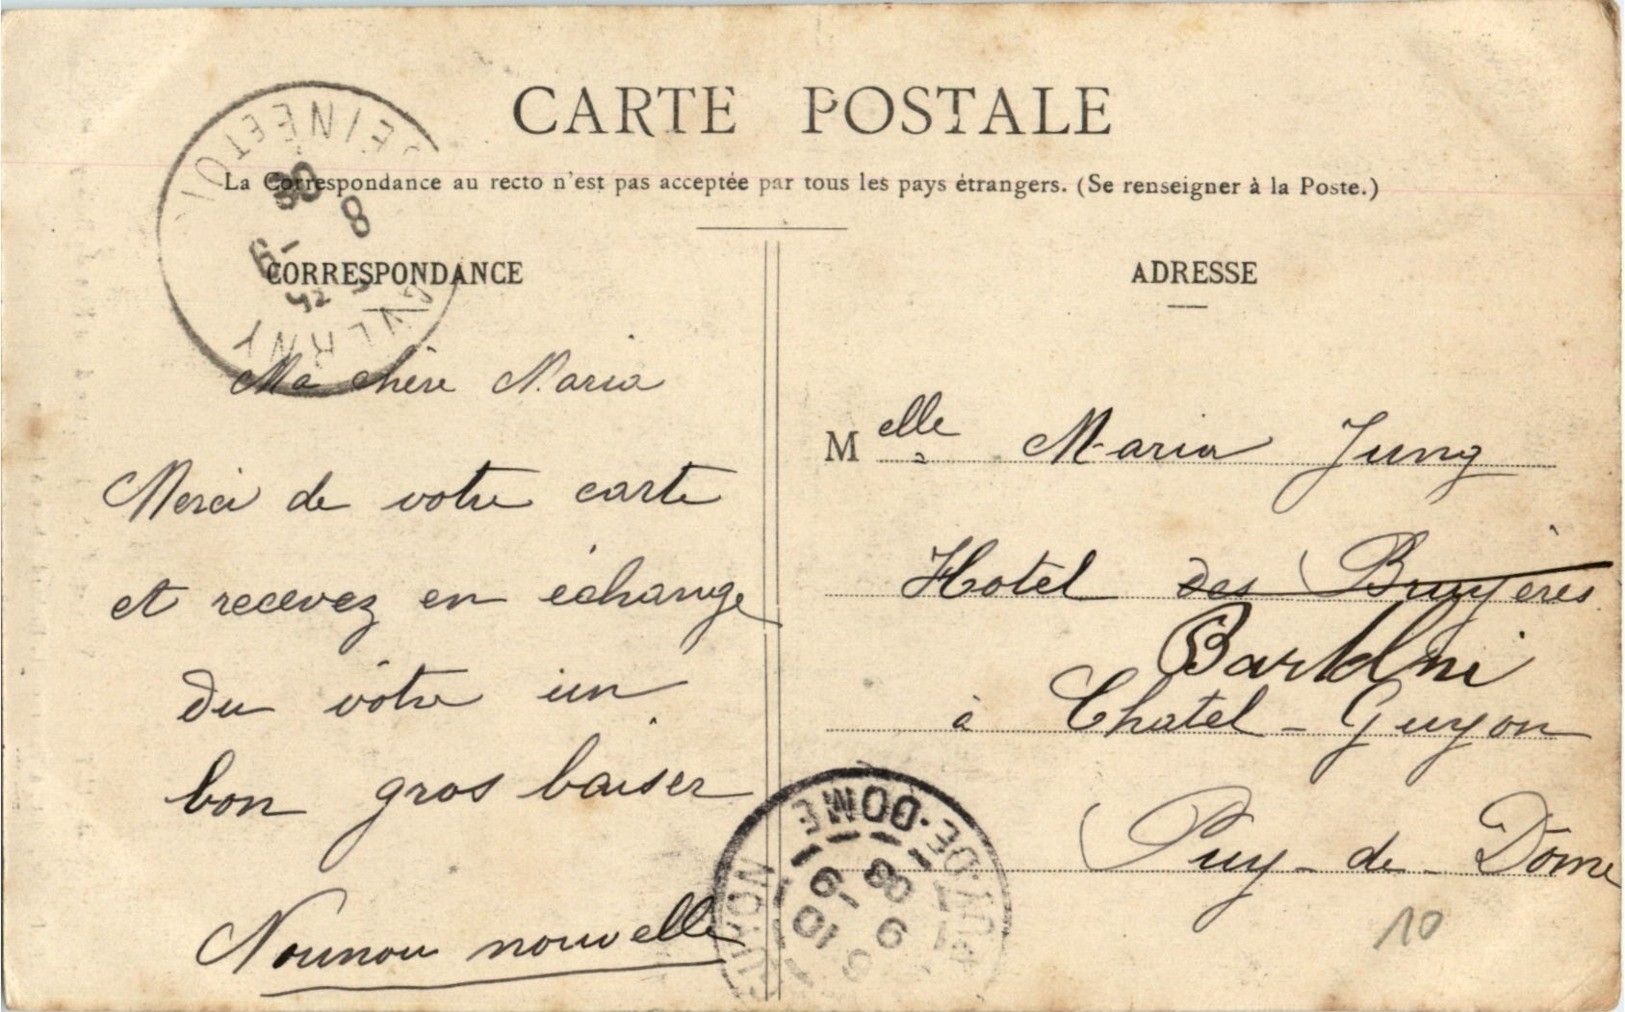 CARTE POSTALE
La Correspondance au recto n'est pas acceptée par tous les pays étrangers. (Se renseigner à la Poste.)
CORRESPONDANCE
Ma chère Maria
Merci de votre carte
et recevez en échange
du vôtre un
bon gros baiser
Nounou nouvelle
ADRESSE
Melle Maria Jung
Hotel des Bruyères
à Chatel-Guyon
Puy-de-Dôme
10
TAVERNY
8
08
PUY-DE-DOME
9
08